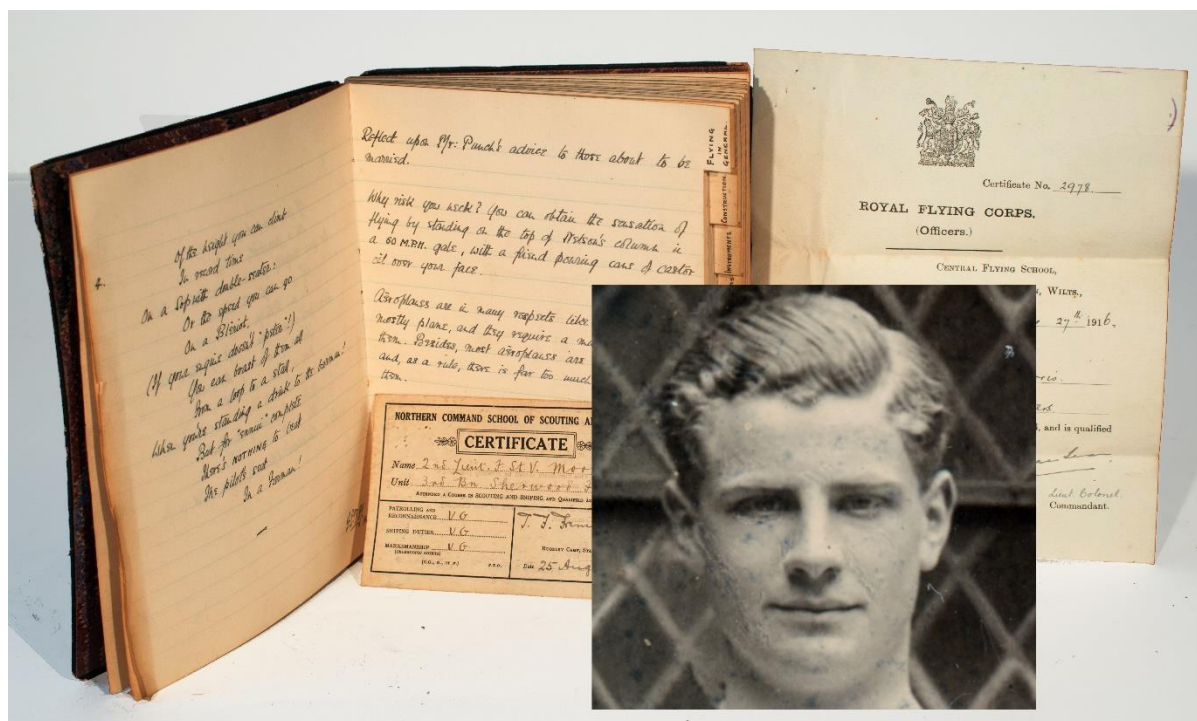 4.
Of the height you can climb
In record time
On a Sopwith double-seater:
Or the speed you can go
On a Blériot,
(If your engine doesn't "peter"!)
You can boast of them all
From a loop to a stall,
When you're standing a drink to the barman!
But for "ennui" complete
There's NOTHING to beat
The pilot's seat
In a Farman!
Reflect upon Mr: Punch's advice to those about to be
married.
Why risk your neck? You can obtain the sensation of
flying by standing on the top of Nelson's column in
a 60 M.P.H. gale, with a friend pouring cans of castor
oil over your face.
Aëroplanes are in many respects like
mostly plane, and they require a
them. Besides, most aëroplanes are
and, as a rule, there is far too much
them.
FLYING
IN
GENERAL.
CONSTRUCTION.
INSTRUMENTS.
NORTHERN COMMAND SCHOOL OF SCOUTING
CERTIFICATE
Name 2nd Lieut. F St V. Moo
Unit 3rd Bn Sherwood
ATTENDED A COURSE IN SCOUTING AND SNIPING AND QUALIFIED
PATROLLING AND
RECONNAISSANCE V G
SNIPING DUTIES V G
MARKSMANSHIP V G
Date 25 Aug
Certificate No. 2978
ROYAL FLYING CORPS.
(Officers.)
CENTRAL FLYING SCHOOL,
WILTS.,
27th 1916.
and is qualified
Lieut Colonel
Commandant.